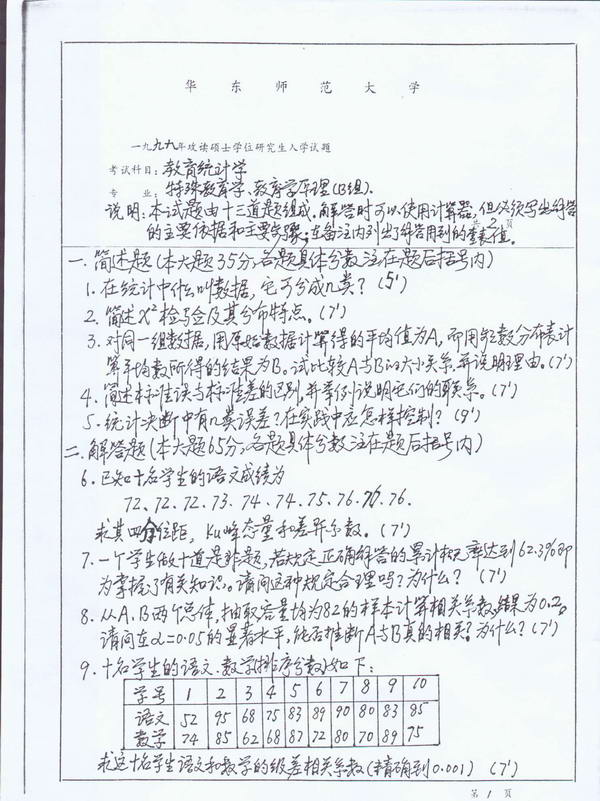 华东师范大学
一九九九年攻读硕士学位研究生入学试题
考试科目:教育统计学
专 业:特殊教育学、教育学原理(B组).
共 2 页
说明:本试题由十三道题组成.解答时可以使用计算器,但必须写出解答
的主要依据和主要步骤;在备注内列出了解答用到的查表值。
一.简述题(本大题35分,各题具体分数注在题后括号内)
1.在统计中什么叫数据,它可分成几类?(5')
2.简述X²检验及其分布特点。(7')
3.对同一组数据,用原始数据计算得的平均值为A,而用频数分布表计
算平均数所得的结果为B。试比较A与B的大小关系,并说明理由。(7')
4.简述标准误与标准差的区别,并举例说明它们的联系。(7')
5.统计决断中有几类误差?在实践中应怎样控制?(9')
二.解答题(本大题65分,各题具体分数注在题后括号内)
6.已知十名学生的语文成绩为
72、72、72、73、74、74、75、76、76、76.
求其四分位距,Ku峰态量和差异系数。(7')
7.一个学生做十道是非题,若规定正确解答的累计概率达到62.3%即
为掌握了有关知识。请问这种规定合理吗?为什么?(7')
8.从A、B两个总体,抽取容量均为82的样本计算相关系数,结果为0.2。
请问在α=0.05的显著水平,能否推断A与B真的相关?为什么?(7')
9.十名学生的语文、数学(排序分数)如下:
学号 1 2 3 4 5 6 7 8 9 10
语文 52 95 68 75 83 89 90 80 83 95
数学 74 85 62 68 87 72 80 70 89 75
求这十名学生语文和数学的级差相关系数(精确到0.001)(7')
第 1 页